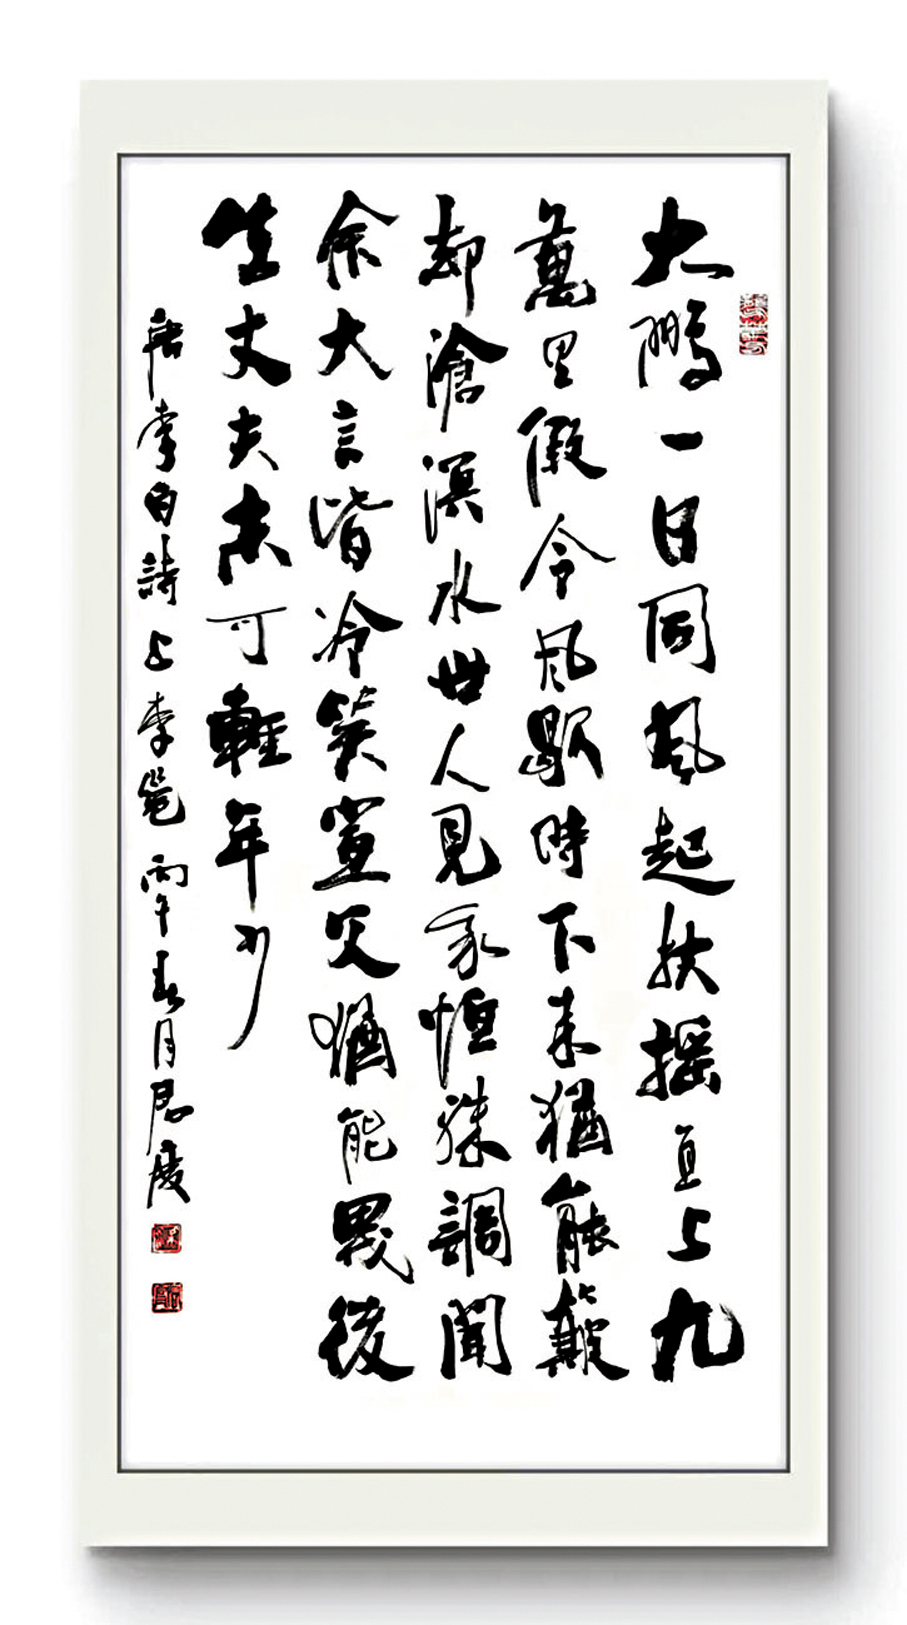 大鵬一日同風起扶摇直上九
萬里假令風歇時下来猶能簸
却滄溟水世人見我恒殊調聞
余大言皆冷笑宣父猶能畏後
生丈夫未可輕年少
唐李白詩上李邕 丙午春月